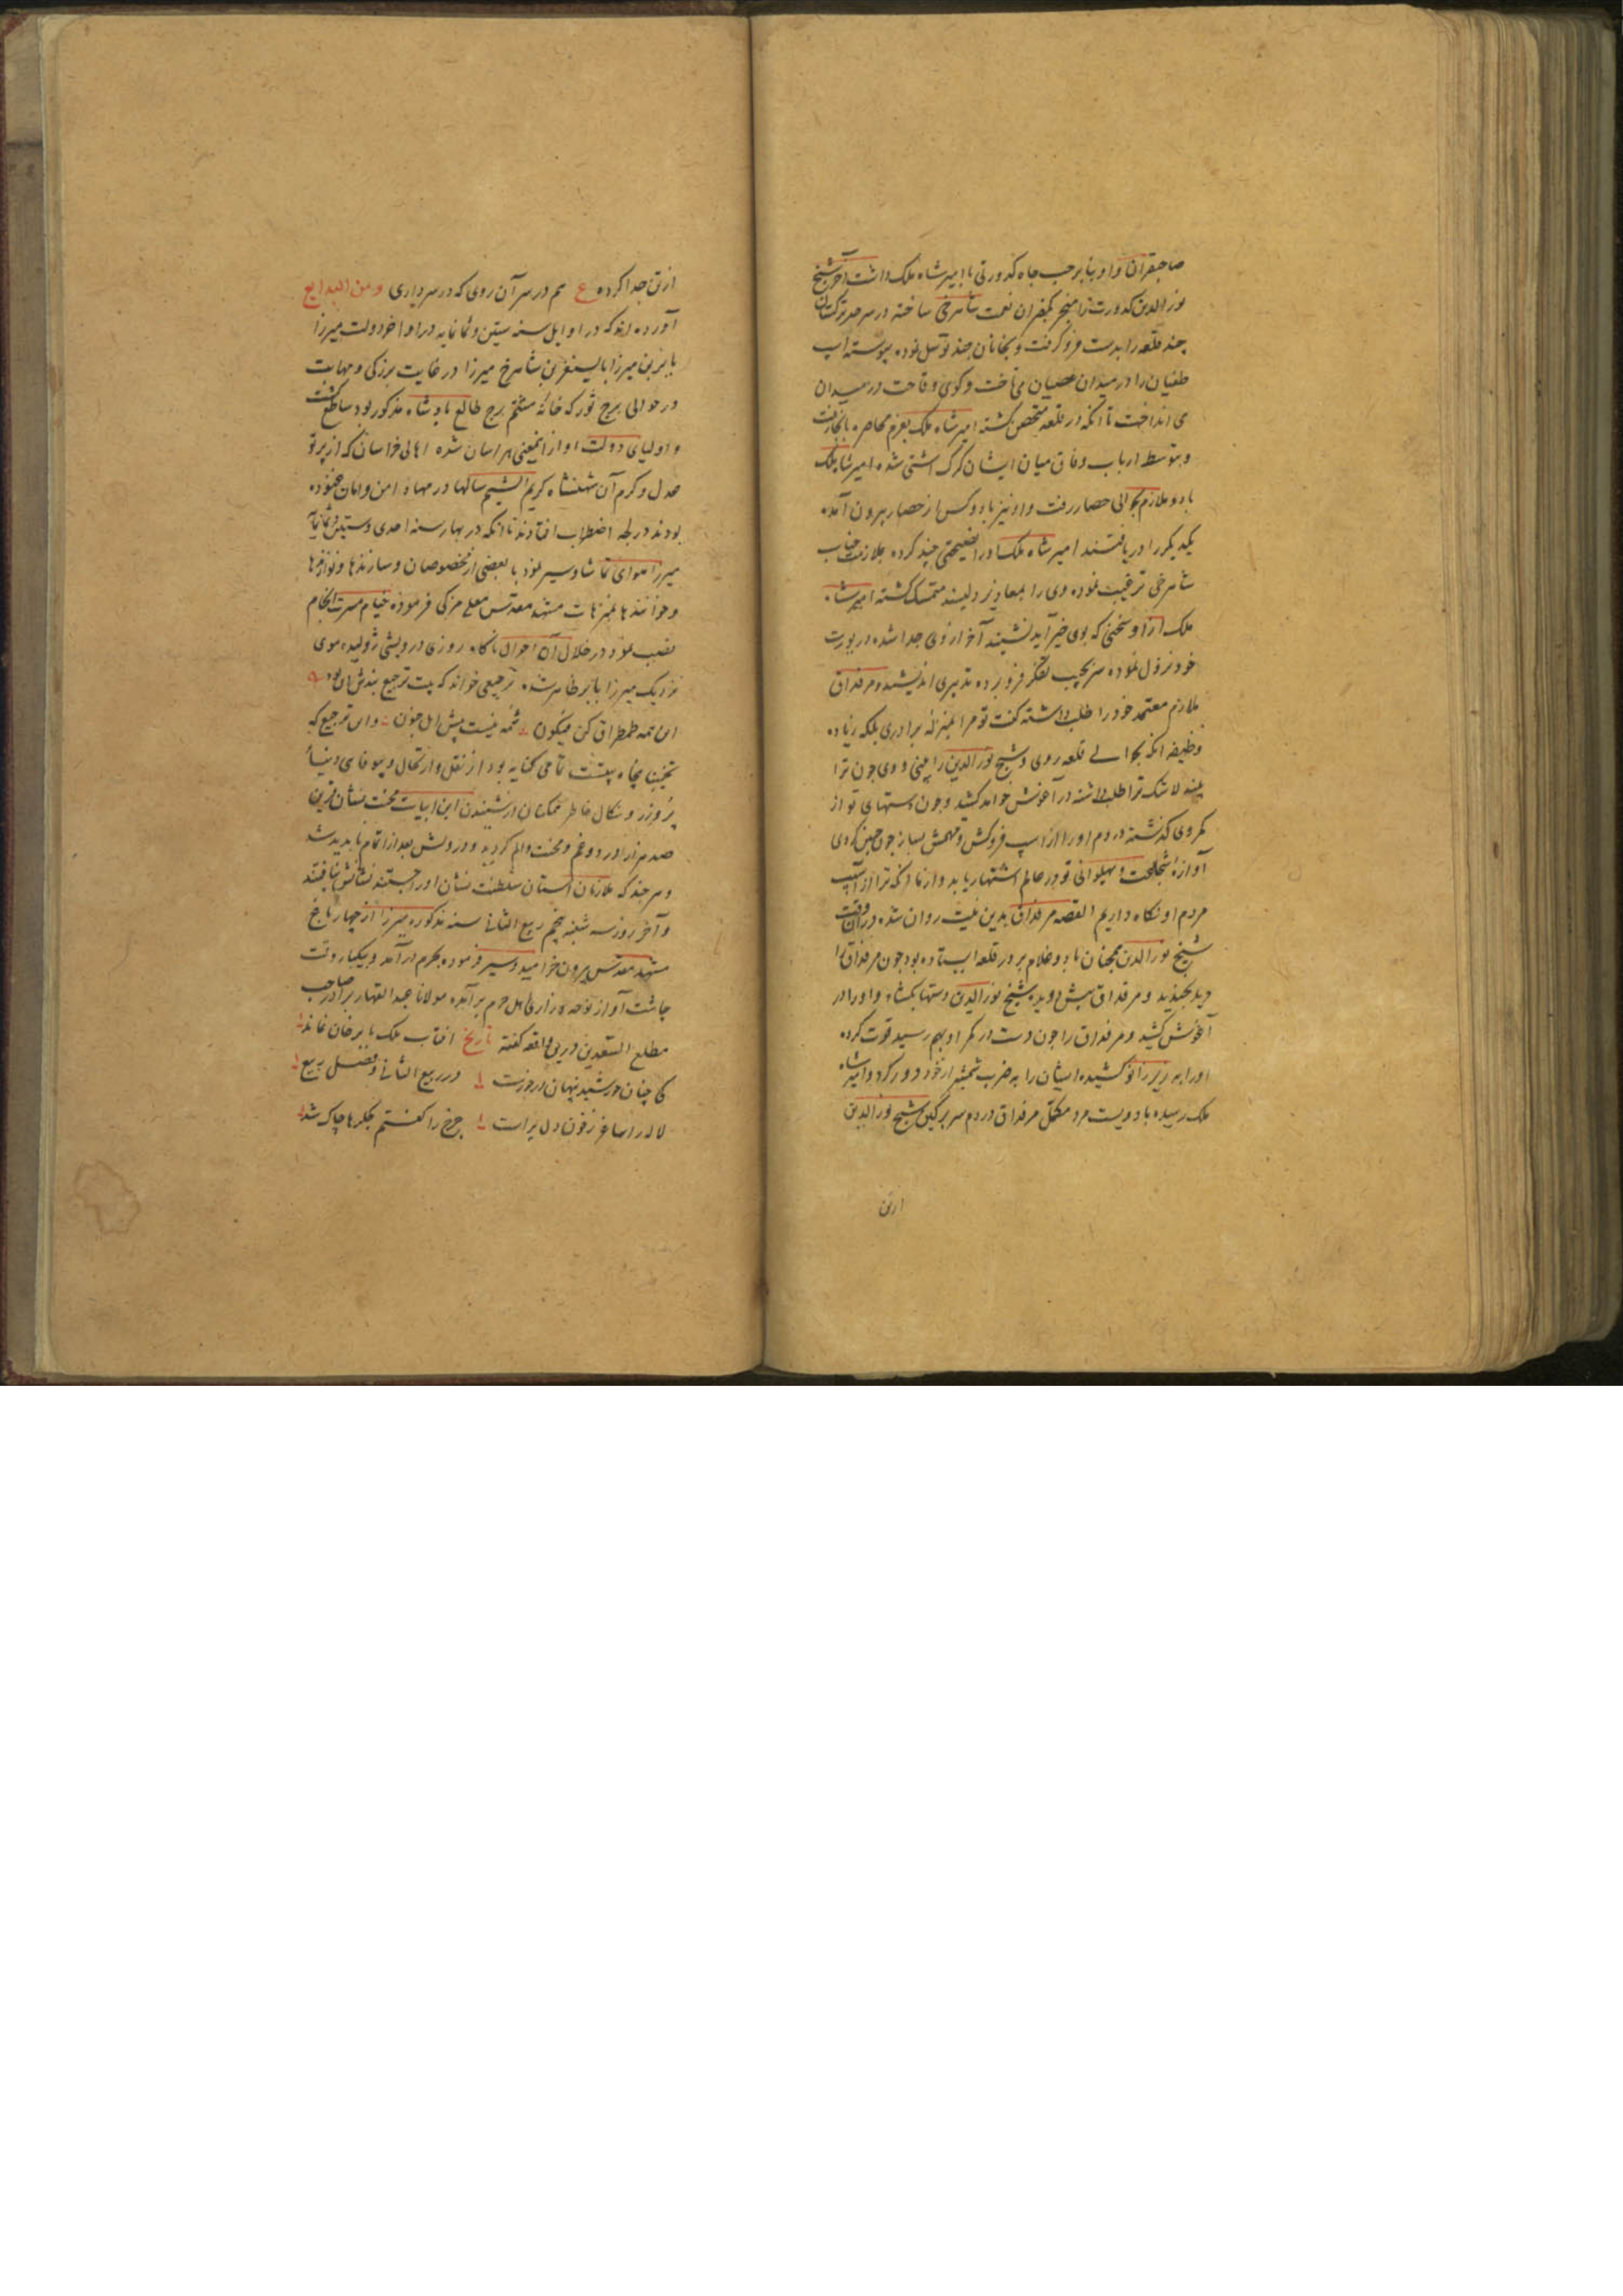 صاحبقران و او بنابر حب جاه کدورتی با امیر شاه ملک داشت آخر شیخ
نور الدین کدورت را منجر بکفران نعمت شاهرخی ساخته در سرحد ترکستان
چند قلعه را بدست فرو گرفت و بخانان چند توسل نموده پیوسته اسپ
طغیان را در میدان عصیان می تاخت و کوی وقاحت در میدان
می انداخت تا آنکه در قلعه متحصن کشته امیر شاه ملک بعزم محاصره بانجا رفت
و بتوسط ارباب وفاق میان ایشان کرک اشتی شده امیر شاه ملک
با دو ملازم بحوالی حصار رفت و او نیز با دو کس از حصار بیرون آمده
یکدیکر را دریافتند امیر شاه ملک او را نصیحتی چند کرده بملازمت جناب
شاهرخی ترغیب نموده وی را بمعاذیر دلپسند متمسک کشته امیر شاه
ملک از او سخنی که بوی خیر آید نشنیند آخر از وی جدا شده در یورت
خود نزول نموده سر بجیب تفکر فرو برده تدبیری اندیشید و مرقداق
ملازم معتمد خود را طلب داشته کفت تو مرا بمنزله برادری بلکه زیاده
وظیفه آنکه بحوالی قلعه روی و شیخ نور الدین را بینی و وی چون ترا
بیند لاشک ترا طلب داشته در آغوش خواهد کشید و چون دستهای تو از
کمر وی کذشته در دم او را از اسپ فروکش و مهمش بساز چون چنین کردی
آوازه شجاعت و پهلوانی تو در عالم اشتهار یابد و از ما آنکه ترا از آسیب
مردم او نکاه داریم القصه مرقداق بدین نیت روان شد در آن وقت
شیخ نور الدین همچنان با دو غلام بر در قلعه ایستاده بود چون مرقداق را
دید بخندید و مرقداق پیش دوید شیخ نور الدین دستها بکشاد و او را در
آغوش کشید و مرقداق را چون دست در کمر او بهم رسید قوت کرده
او را به زیر زانو کشیده ایشان را به ضرب شمشیر از خود دور کرد و امیر شاه
ملک رسیده با دویست مرد مکمل مرقداق در دم سر پرکین شیخ نور الدین
ازتن
ازتن جدا کرده ع هم در سر آن روی که در سر داری ومن البدایع
آورده اند که در اوایل سنه ستین و ثمانمایه در اواخر دولت میرزا
بابر بن میرزا بایسنغر بن شاهرخ میرزا در غایت بزرکی و مهابت
در حوالی برج ثور که خانه هشتم برج طالع پادشاه مذکور بود ساطع کشت
و اولیای دولت او از اینمعنی هراسان شده اهالی خراسان که از پرتو
عدل و کرم آن شهنشاه کریم الشیم سالها در مهاد امن و امان غنوده
بودند در لجه اضطراب افتادند تا آنکه در بهار سنه احدی و ستین و ثمانمایه
میرزا هوای تماشا و سیر نمود با بعضی از مخصوصان و سازندها و نوازندها
و خوانندها بمنزهات مشهد مقدس معلی مزکی فرموده خیام مسرت انجام
نصب نمود در خلال آن احوال ناکاه روزی درویشی ژولیده موی
نزدیک میرزا بابر ظاهر شده ترجیعی خواند که بیت ترجیع بندش این بود
این همه طمطراق کن فیکون شمه نیست پیش اهل جنون وان ترجیع که
تخمینا پنجاه بیتست تمامی کنایه بود از نقل و ارتحال و بیوفایی دنیای
پر وزر و نکال خاطر همکنان از شنیدن این ابیات محنت نشان قرین
صد هزار درد و غم و محنت و الم کردید و درویش بعد از اتمام ناپدید شد
و هر چند که ملازمان آستان سلطنت نشان او را جستند نشانش نیافتند
و آخر روز سه شنبه پنجم ربیع الثانی سنه مذکوره میرزا از چهارباغ
مشهد مقدس بیرون خرامید و سیر فرموده بحرم درآمد و بیکبار وقت
چاشت آواز نوحه و زاری اهل حرم برآمد مولانا عبدالقهار برادر صاحب
مطلع السعدین درین واقعه کفته تاریخ افتاب ملک بابر خان نماند
کی چنان خورشید پنهان درخورست در ربیع الثانی و فصل ربیع
لاله را ساغر ز خون دل پر است چرخ را کفتم جکرها چاک شد